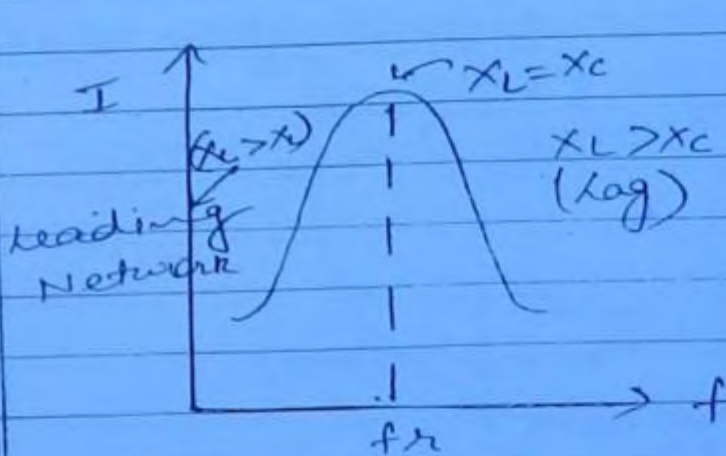 I
X_L = X_C
(X_C > X_L)
X_L > X_C
(Lag)
Leading
Network
f
fr